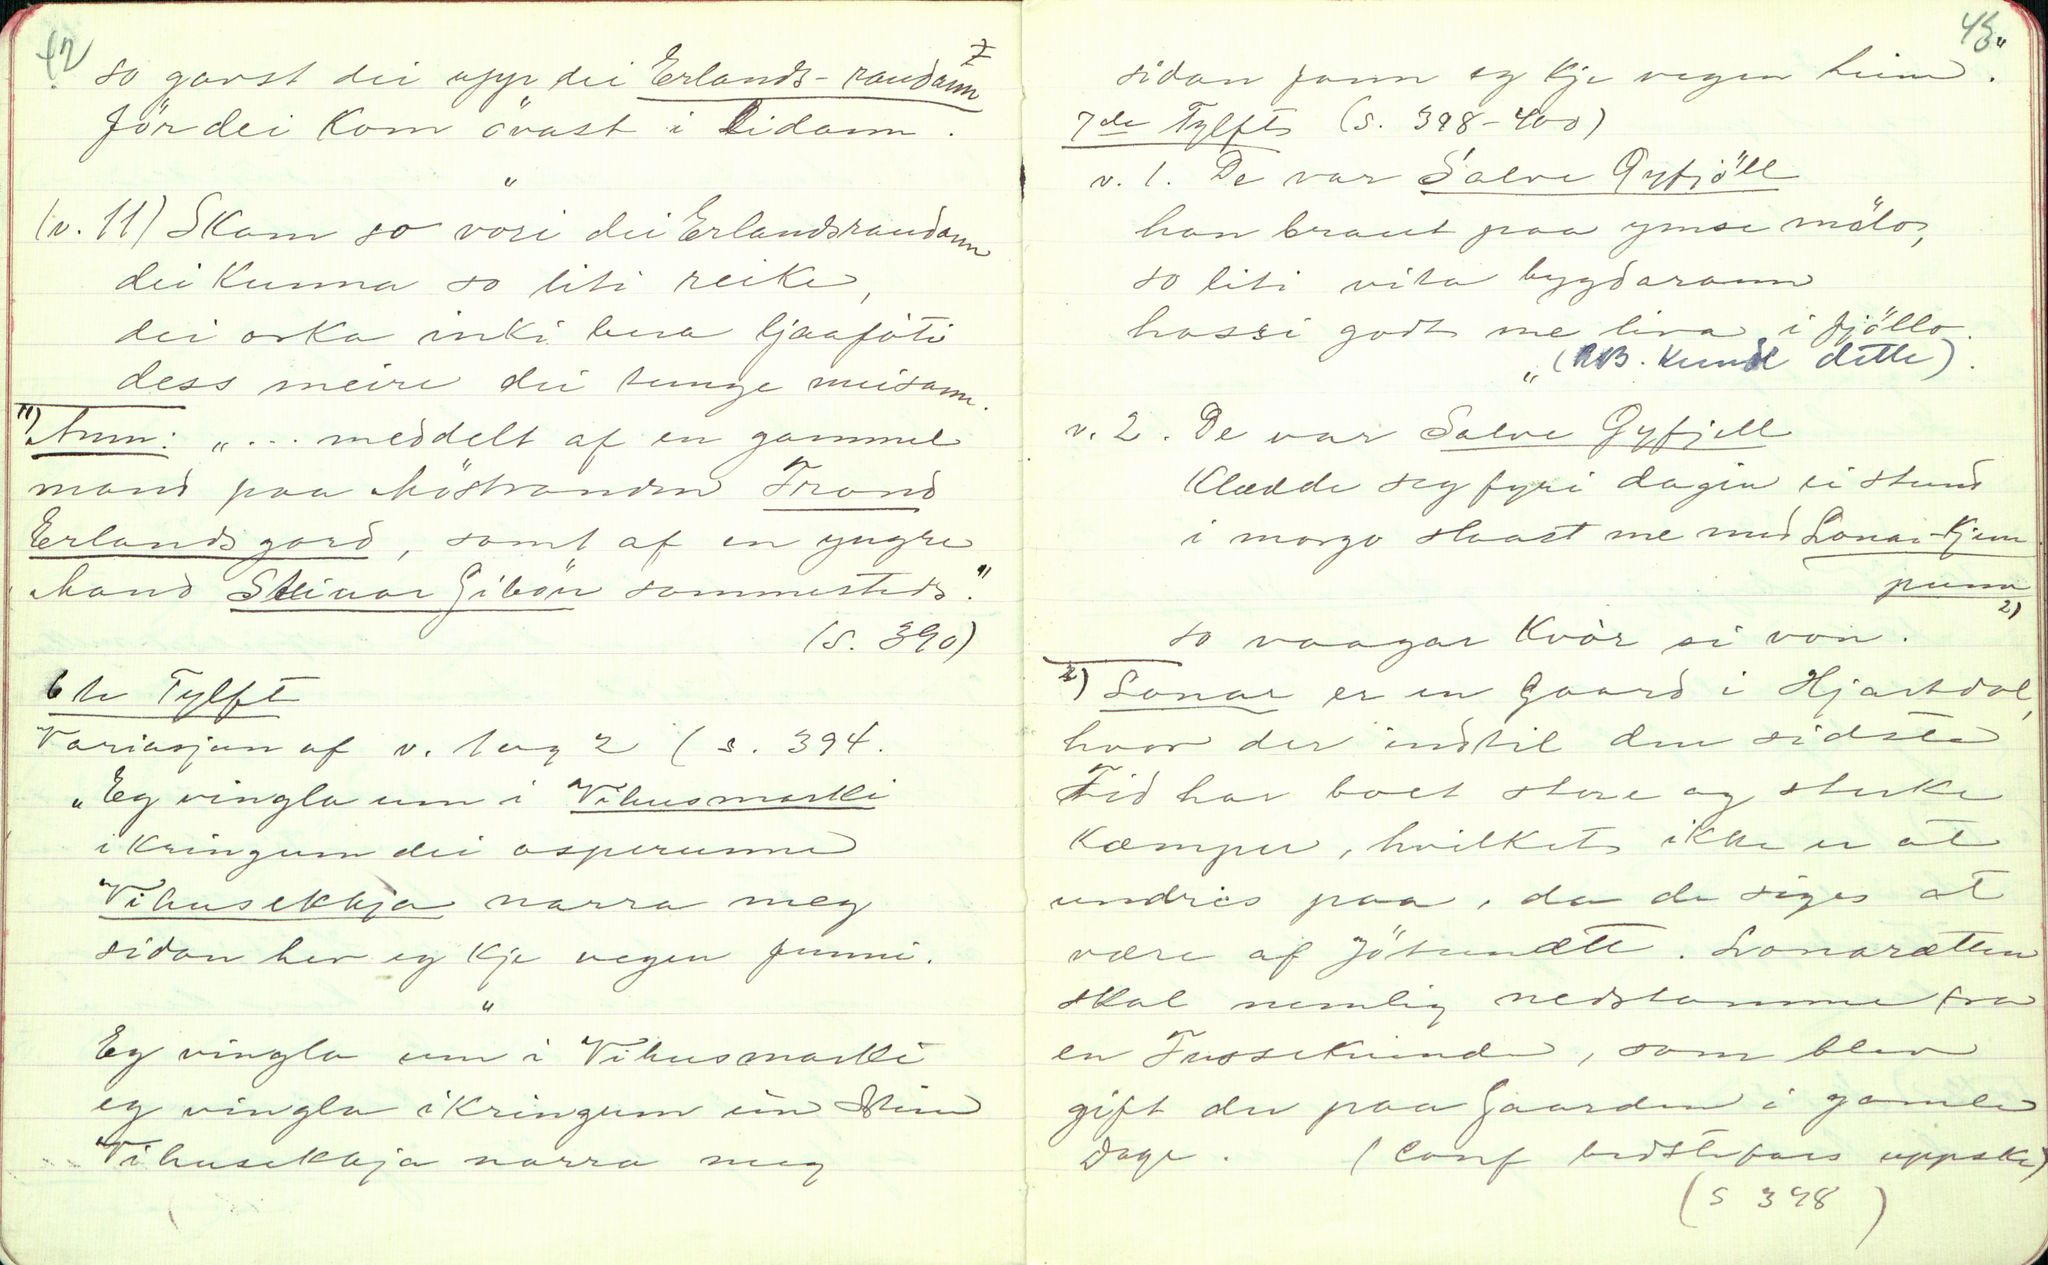 42
so gavst dei upp dei Erlands-raudann
før dei kom övast i Lidann.
"
(v. 11) Skam so vori dei Erlandsraudann
dei kunna so liti reike,
dei orka inki bera ljaaföti
dess meire dei tunge meisann.
11) Anm: "... meddelt af en gammel
mand paa Möstranden Trond
Erlandsgard, samt af en yngre
Mand Steinar Gibøn sammesteds."
(s. 390)
6te Tylft
Variasjon af v. 1 og 2 (s. 394.
"Eg vingla um i Vihusmarki
ikringum dei osperunne
Vihusekkja narra meg
sidan hev eg kje vegen funni.
"
Eg vingla um i Vihusmarki
eg vingla ikringum ein Stein
Vihusekkja narra meg
43"
sidan fann eg kje vegen heim.
7de Tylft (s. 398-400)
v. 1. De var Salve Gyfjöll
han braut paa ymse målo,
so liti vita bygdarann
hossi godt me liva i fjöllo.
" (RB. kunde dette).
v. 2. De var Salve Gyfjell
Klædde seg fyri dagin ei stund
i morgo slaast me med Lonar-Kjem
punn 2)
so vaagar kvòr si von.
2) Lonar er en Gaard i Hjartdal,
hvor der indtil den sidste
Tid har boet store og sterke
Kæmper, hvilket ikke er at
undres paa, da de siges at
være af Jötunætt. Lonarætten
skal nemlig nedstamme fra
en Tussekunde, som blev
gift der paa Gaarden i gamle
Dage. (Conf bedstefars uppskr)
(s 398)